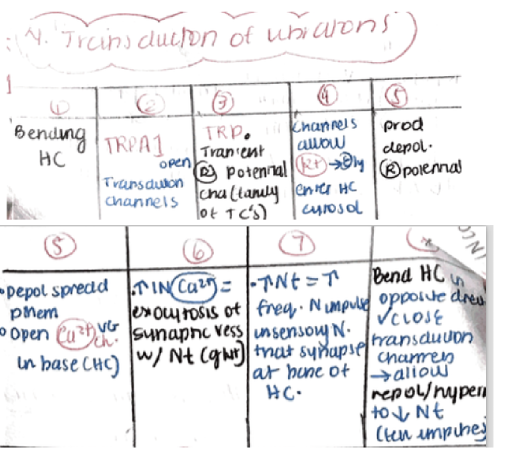 4. Transduction of vibrations
1
① ② ③ ④ ⑤
Bending
HC
TRPA1
open
Transduction
channels
TRP.
Transient
Ⓡ Potennal
cha (family
of TC's)
Channels
allow
(K+) →
enter HC
cytosol
prod
depol.
Ⓡ potennal
⑤ ⑥ ⑦
•Depol spread
pmem
Open (Ca²⁺) VG
ch.
in base (HC)
•↑ IN (Ca²⁺) =
exocytosis of
synaptic vess
w/ Nt (glut)
•↑Nt = ↑
freq. N impulse
in sensory N.
that synapse
at base of
HC.
Bend HC in
opposite
✓ CLOSE
transduction
channels
→ allow
repol/hyper
to ↓ Nt